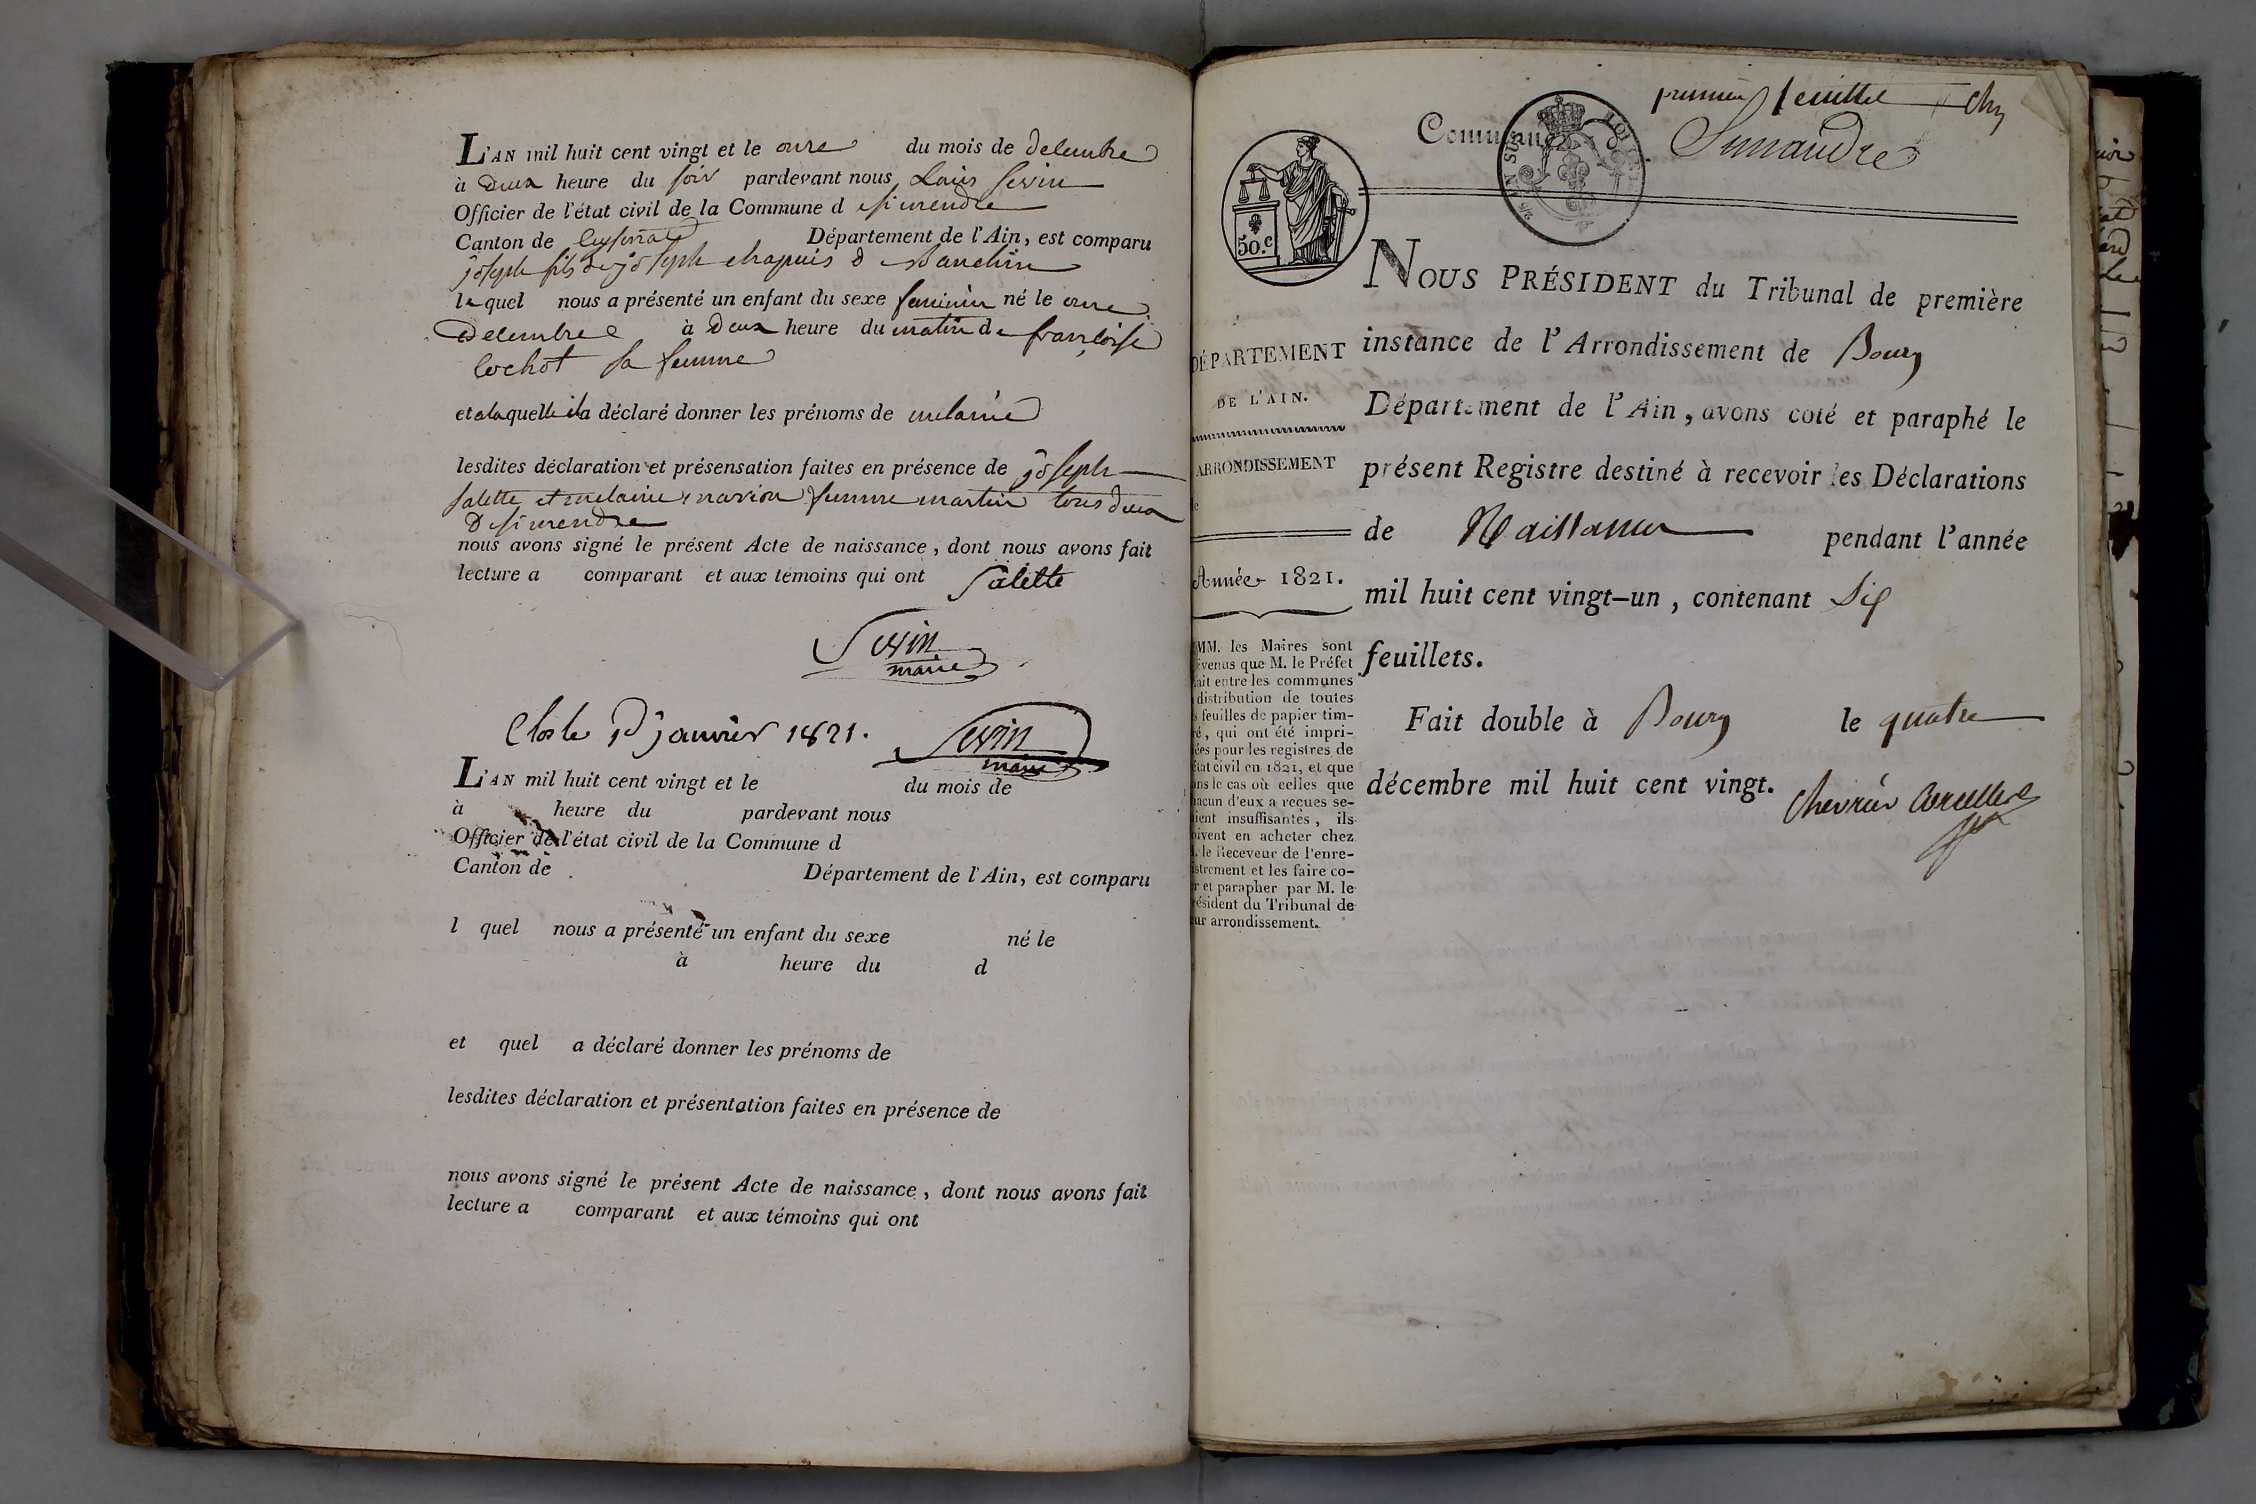 L'AN mil huit cent vingt et le onze du mois de decembre
à deux heure du soir pardevant nous Louis sevin
Officier de l'état civil de la Commune d simendre
Canton de Département de l'Ain, est comparu
joseph fils de joseph chapuis d
le quel nous a présenté un enfant du sexe feminin né le onze
decembre à deux heure du matin de francoise
cochot sa femme
et a laquelle il a déclaré donner les prénoms de melanie
lesdites déclaration et présensation faites en présence de joseph
salette et melanie marion femme martin tous deux
de simendre
nous avons signé le présent Acte de naissance, dont nous avons fait
lecture a comparant et aux témoins qui ont Salette
Sevin
maire
Clos le 1er janvier 1821. Sevin
maire
L'AN mil huit cent vingt et le du mois de
à heure du pardevant nous
Officier de l'état civil de la Commune d
Canton de Département de l'Ain, est comparu
l quel nous a présenté un enfant du sexe né le
à heure du d
et quel a déclaré donner les prénoms de
lesdites déclaration et présentation faites en présence de
nous avons signé le présent Acte de naissance, dont nous avons fait
lecture a comparant et aux témoins qui ont
premier feuillet
Commune d Simandre
50.c
NOUS PRÉSIDENT du Tribunal de première
instance de l'Arrondissement de Bourg
Département de l'Ain, avons coté et paraphé le
présent Registre destiné à recevoir les Déclarations
de Naissances pendant l'année
mil huit cent vingt-un, contenant Six
feuillets.
Fait double à Bourg le quatre
décembre mil huit cent vingt.
Chevrier Corcelles
DÉPARTEMENT
DE L'AIN.
ARRONDISSEMENT
Année 1821.
MM. les Maires sont
évenus que M. le Préfet
ait entre les communes
distribution de toutes
s feuilles de papier tim-
ré, qui ont été impri-
ées pour les registres de
état civil en 1821, et que
ans le cas où celles que
hacun d'eux a reçues se-
aient insuffisantes, ils
oivent en acheter chez
. le Receveur de l'enre-
istrement et les faire co-
r et parapher par M. le
résident du Tribunal de
ur arrondissement.